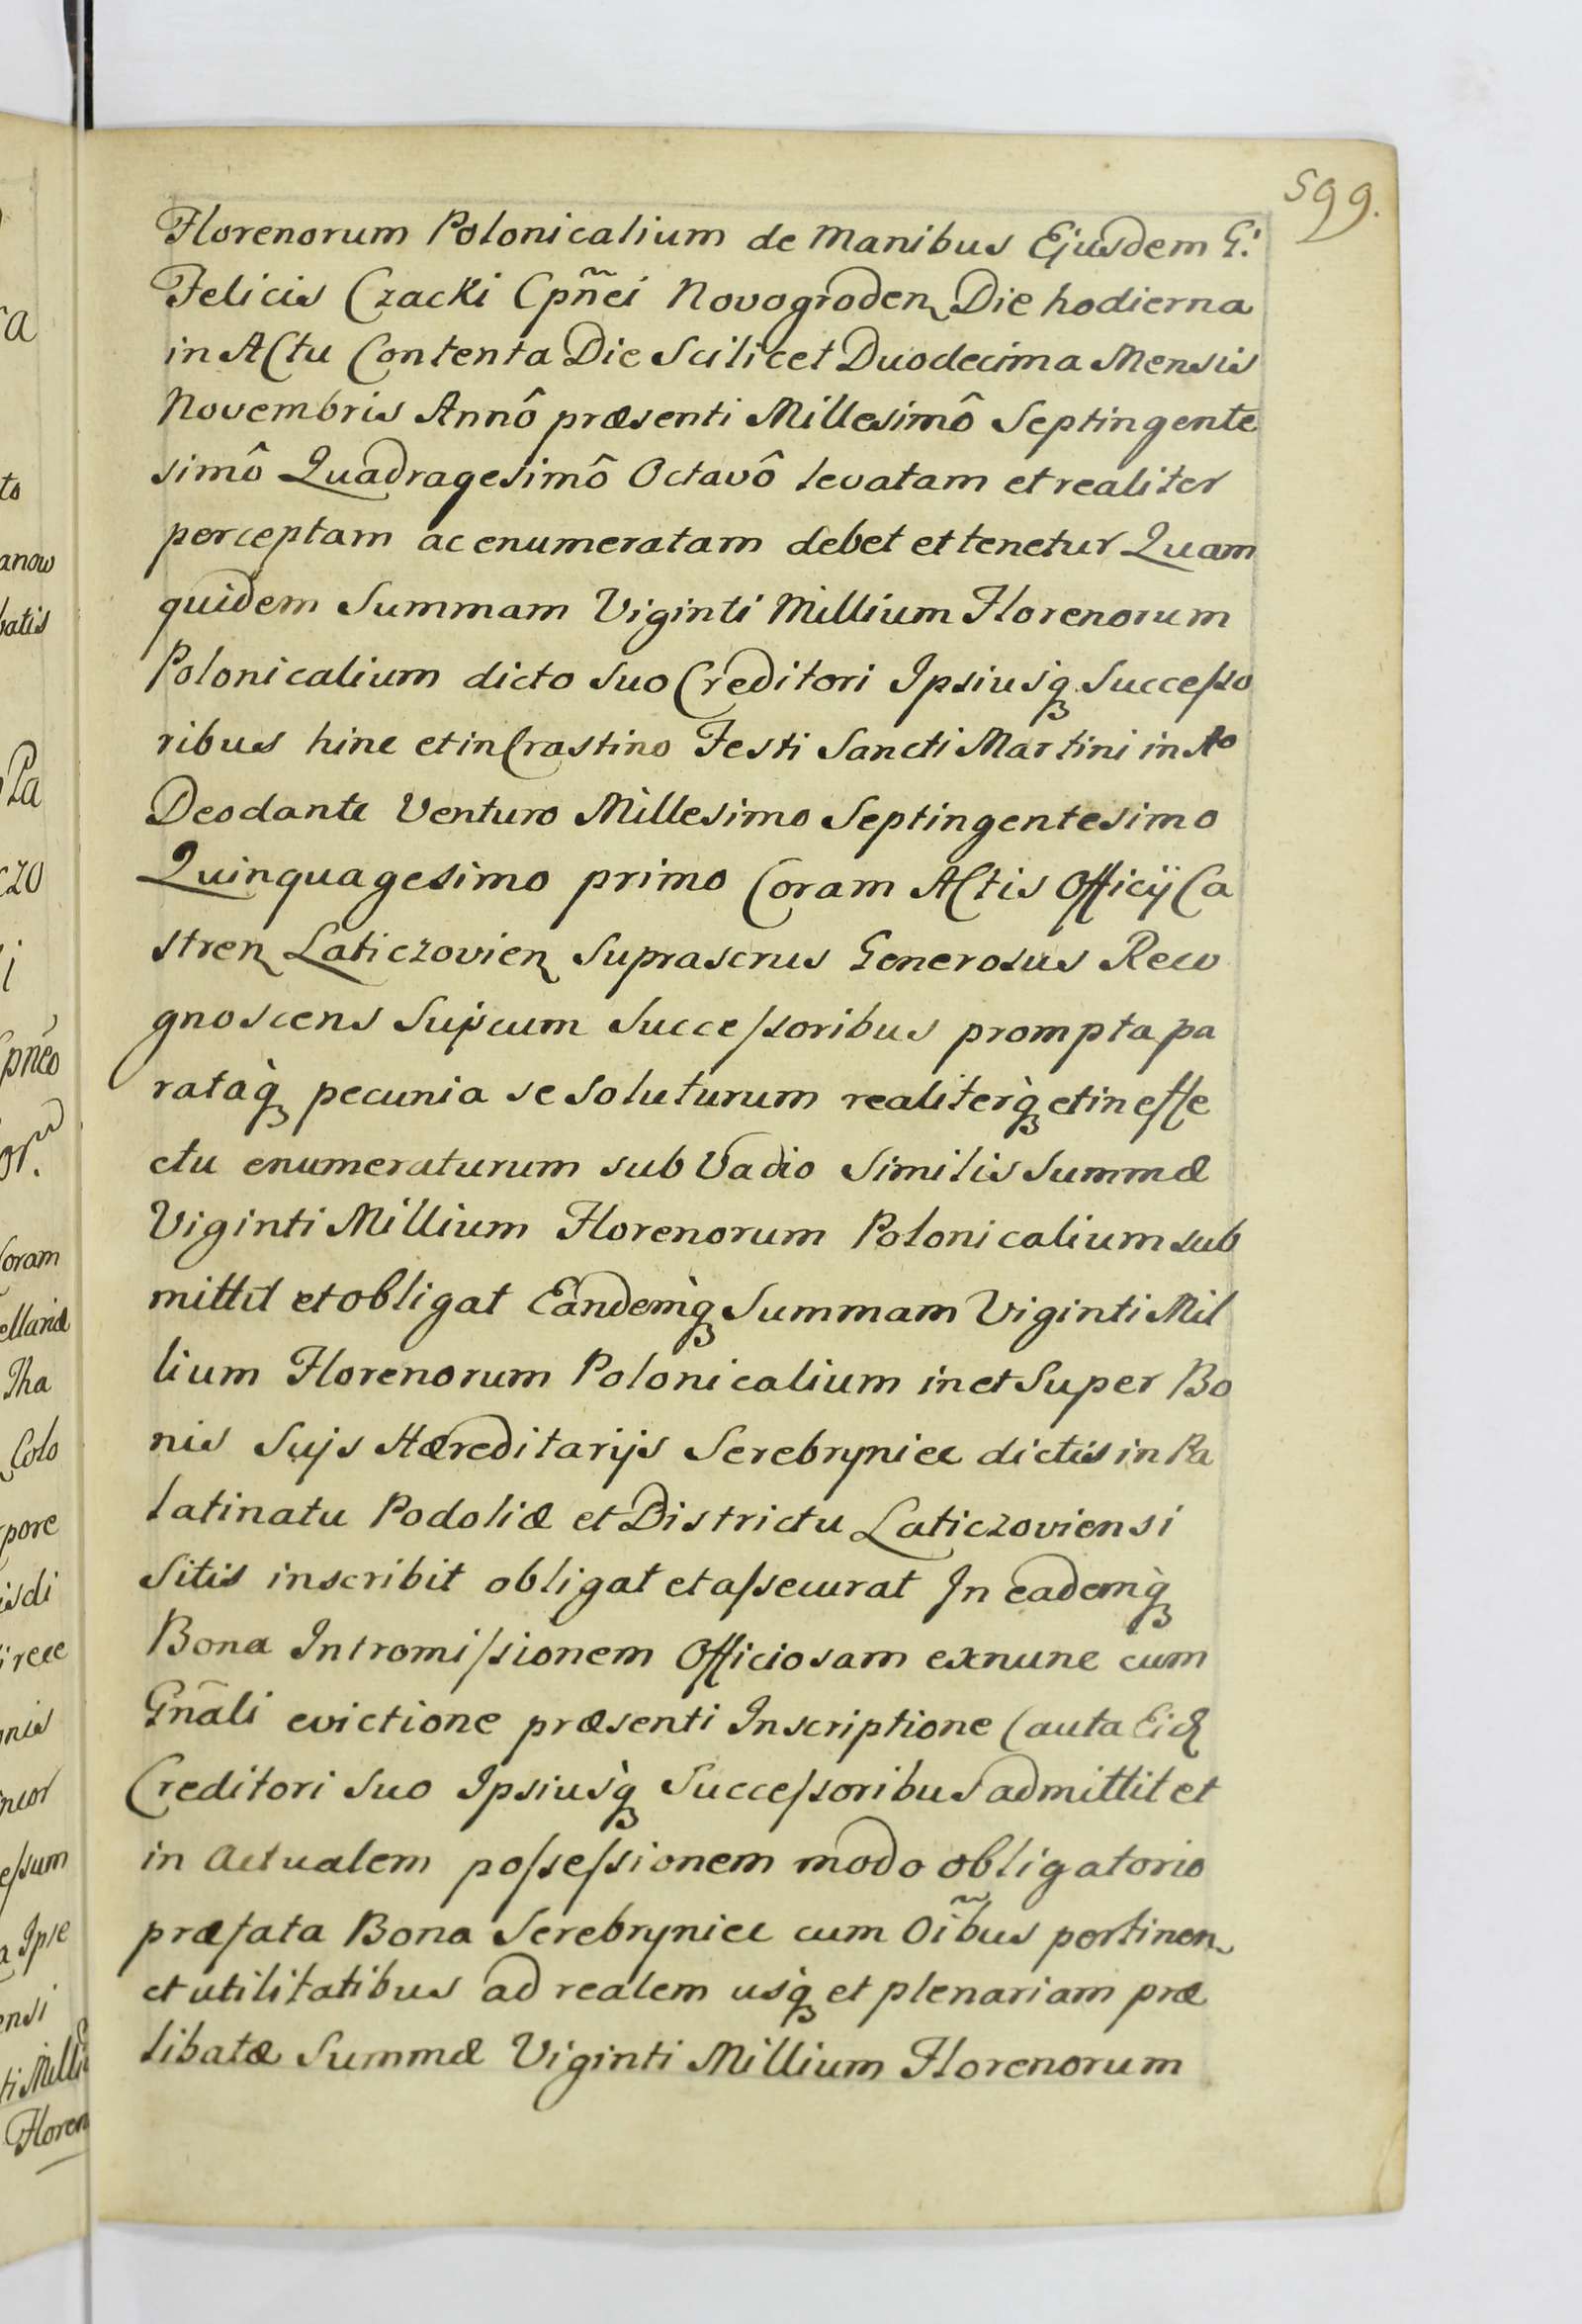 599.
Florenorum Polonicalium de Manibus Ejusdem G:
Felicis Czacki Cpñei Novogroden Die hodierna
in Actu Contenta Die Scilicet Duodecima Mensis
Novembris Annô præsenti Millesimô Septingente
simô Quadragesimô Octavô levatam et realiter
perceptam ac enumeratam debet et tenetur Quam
quidem Summam Viginti Millium Florenorum
Polonicalium dicto suo Creditori Ipsiusq́ Successo
ribus hinc et in Crastino Festi Sancti Martini in Ao
Deo dante Venturo Millesimo Septingentesimo
Quinquagesimo primo Coram Actis Officij Ca
stren Laticzovien Suprascrus Generosus Reco
gnoscens Suis cum Successoribus prompta pa
rataq̀ pecunia se Soluturum realiterq̀ et in effe
ctu enumeraturum sub Vadio Similis Summæ
Viginti Millium Florenorum Polonicalium sub
mittit et obligat Eandemq̀ Summam Viginti Mil
lium Florenorum Polonicalium in et Super Bo
nis Sujs Hæreditarijs Serebryniec dictis in Pa
latinatu Podoliæ et Districtu Laticzoviensi
Sitis inscribit obligat et assecurat In eademq̀
Bona Intromissionem Officiosam exnunc cum
Gnãli evictione præsenti Inscriptione Cauta Eid
Creditori Suo Ipsiusq̀ Successoribus admittit et
in Actualem possessionem modo obligatorio
præfata Bona Serebryniec cum Oĩbus pertinen
et utilitatibus ad realem usq̀ et plenariam præ
libatæ Summæ Viginti Millium Florenorum